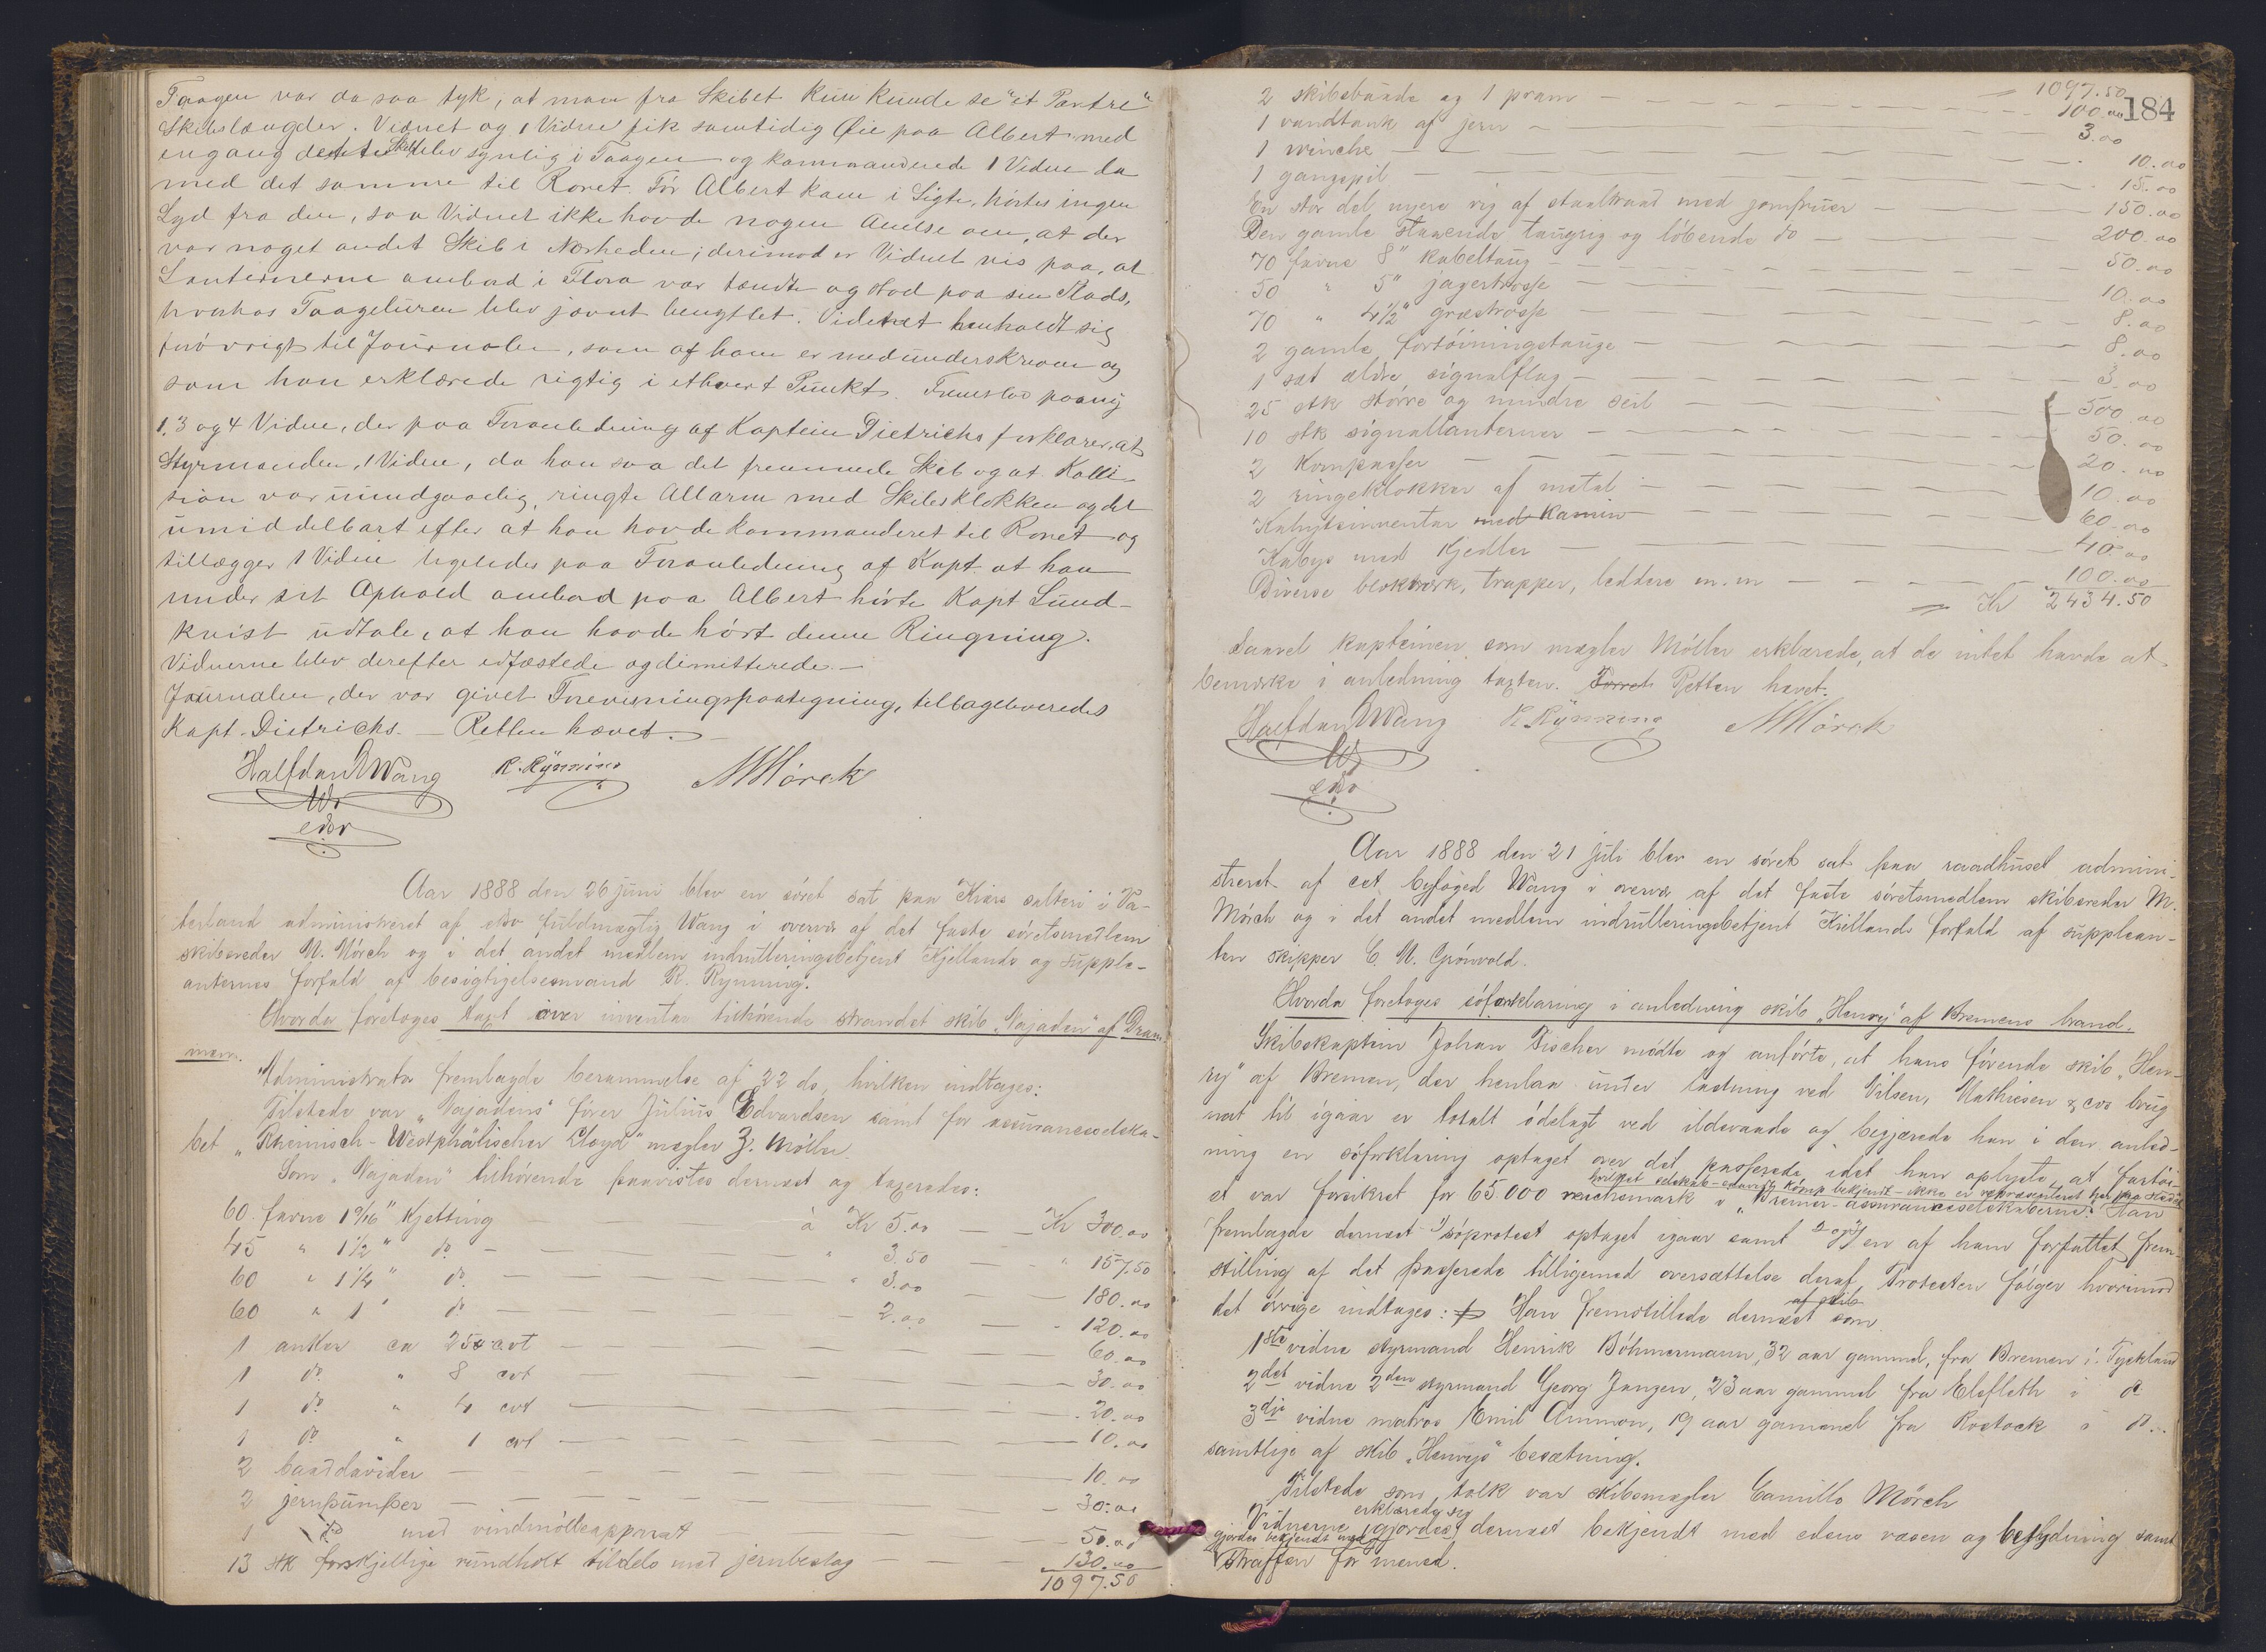 Taagen var da saa tyk, at man fra Skibet kun kunde se "et Par tre"
Skibslængder. Vidnet og 1 Vidne fik samtidig Øie paa Albert med
engang dette Skib blev synlig i Taagen og kommanderede 1 Vidne da
med det samme til Roret. Før Albert kom i Sigte, hørtes ingen
Lyd fra den, saa Vidnet ikke havde nogen Anelse om, at der
var noget andet Skib i Nærheden; derimod er Vidnet vis paa, at
Lanternerne ombord i Flora var tændte og stod paa sin Plads,
hvorhos Taageluren blev jævnt benyttet. Vidnet henholdt sig
forøvrigt til Journalen, som af ham er medunderskreven og
som han erklærede rigtig i ethvert Punkt. Fremstod paany
1. 3 og 4 Vidne, der paa Foranledning af Kaptein Dietrichs forklarer, at
Styrmanden, 1 Vidne, da han saa det fremmede Skib og at Kolli-
sion var uundgaaelig, ringte Allarm med Skibsklokken og det
umiddelbart efter at han havde kommanderet til Roret og
tillægger 1 Vidne ligeledes paa Foranledning af Kapt. at han
under sit Ophold ombord paa Albert hørte Kapt Lund-
kvist udtale, at han havde hørt denne Ringning.
Vidnerne blev derefter edfæstede og dimitterede.—
Journalen, der var givet Forevisningspaategning, tilbageleveredes
Kapt. Dietrichs. — Retten hævet.
Halfdan Wang R. Rynning M Mörch
edsv
Aar 1888 den 26 juni blev en søret sat paa Kiærs salteri i Va-
terland administreret af edsv fuldmægtig Wang i overvær af det faste søretsmedlem
skibsreder M. Mörch og i det andet medlem indrulleringsbetjent Kjellands og supple-
anternes forfald af besigtigelsesmand R. Rynning.
Hvorda foretoges taxt over inventar tilhørende strandet skib "Najaden" af Dram-
men.
Administrator fremlagde berammelse af 22 ds, hvilken indtages:
Tilstede var "Najadens" fører Julius Edvardsen samt for assuranceselska-
bet "Rheinisch-Westphälischer Lloyd" mægler Z. Møller.
Som "Najaden" tilhørende paavistes dernæst og taxeredes:
60 favne 1 9/16" Kjetting — à Kr 5.00 — Kr 300.00
45 " 1½" do — " 3.50 — " 157.50
60 " 1¼" do. — " 3.00 — 180.00
60 " 1" do — 2.00 — 120.00
1 anker ca 25 cvt — 60.00
1 do " 8 cvt — 30.00
1 do " 4 cvt — 20.00
1 do " 1 cvt — 10.00
2 baaddavider — 10.00
2 jernpumper — 30.00
1 do med vindmølleapparat — 50.00
13 stk forskjellige rundholt tildels med jernbeslag — 130.00
1097.50
184
1097.50
2 skibsbaade og 1 pram — 100.00
1 vandtank af jern — 3.00
1 winche — 10.00
1 gangspil — 15.00
En stor del nyere rig af staaltraad med jomfruer — 150.00
Den gamle staaende taugrig og løbende do — 200.00
70 favne 8" kabeltaug — 50.00
50 " 5" jagertrosse — 10.00
70 " 4½" græstrosse — 8.00
2 gamle fortøiningstauge — 8.00
1 sæt ældre signalflag — 3.00
25 stk større og mindre seil — 500.00
10 stk signallanterner — 50.00
2 Kompasser — 20.00
2 ringeklokker af metal — 10.00
Kahytsinventar med Kamin — 60.00
Kabys med Kjedler — 40.00
Diverse blokværk, trapper, leddere m.m — 100.00
Kr 2434.50
Saavel kapteinen som mægler Møller erklærede, at de intet havde at
bemærke i anledning taxten. Retten hævet.
Halfdan Wang R. Rynning M Mörch
edsv
Aar 1888 den 21 juli blev en søret sat paa raadhuset admini-
streret af cst. byfoged Wang i overvær af det faste søretsmedlem skibsreder M.
Mörch og i det andet medlem indrulleringsbetjent Kiellands forfald af supplean-
ten skipper C. M. Grønvold.
Hvorda foretoges søforklaring i anledning skib "Henry" af Bremens brand.
Skibskaptein Johan Fischer mødte og anførte, at hans førende skib "Hen-
ry" af Bremen, der henlaa under ladning ved Nilsen, Mathiesen & cos brug
nat til igaar er totalt ødelagt ved ildsvaade og begjærede han i den anled-
ning en søforklaring optaget over det passerede idet han oplyste, at fartøi-
hvilket selskab – saavidt komp. bekjendt – ikke er repræsenteret her paa stedet
et var forsikret for 65.000 reichsmark i "Bremer-assuranceselskaberne". Han
fremlagde dernæst 1) søprotest optaget igaar samt 2 og 3) en af ham forfattet frem-
stilling af det passerede tilligemed oversættelse deraf. Protesten følger hvorimod
det øvrige indtages: Han fremstillede dernæst som
af skib
1ste vidne styrmand Henrik Böhmermann, 32 aar gammel, fra Bremen i Tyskland
2det vidne 2den styrmand Georg Janzen, 23 aar gammel fra Elsfleth i do
3die vidne matros Emil Ammon, 19 aar gammel fra Rostock i do.
samtlige af skib "Henrys" besætning.
Tilstede som tolk var skibsmægler Camillo Mörch
erklærede sig
Vidnerne gjordes dernæst bekjendt med edens væsen og betydning samt
gjordes bekjendt med
straffen for mened.